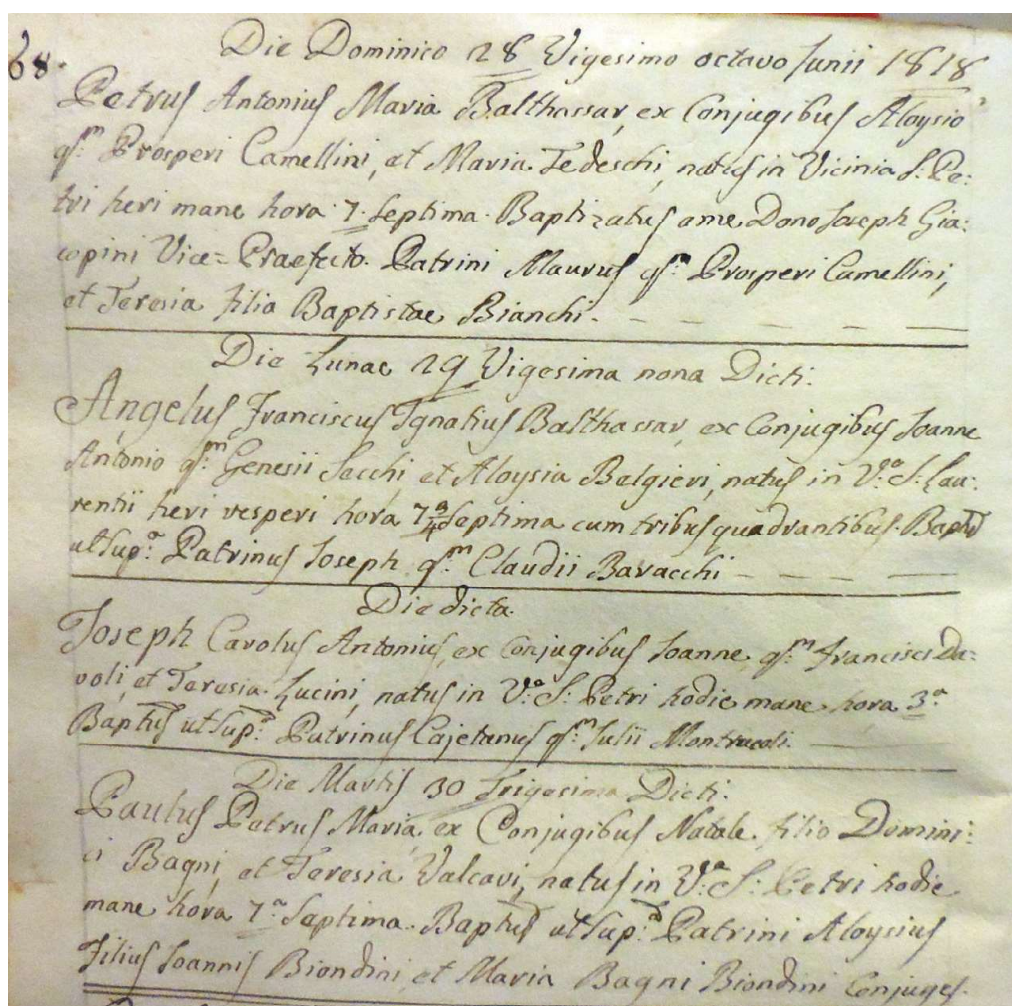 68.
Die Dominico 28 Vigesimo octavo Junii 1818
Petrus Antonius Maria Balthassar, ex Conjugibus Aloysio
qm. Prosperi Camellini, et Maria Tedeschi, natus in Vicinia S: Pe:
tri heri mane hora 7. Septima. Baptizatus a me Dono Joseph Gia:
copini Vice=Praefecto. Patrini Maurus qm. Prosperi Camellini,
et Teresia filia Baptistae Bianchi.
Die Lunae 29 Vigesima nona Dicti.
Angelus Franciscus Ignatius Balthassar, ex Conjugibus Joanne
Antonio qm. Genesii Secchi, et Aloysia Belgieri, natus in Va. S: Lau:
rentii heri vesperi hora 7 3/4 Septima cum tribus quadrantibus. Baptus
ut Supa. Patrinus Joseph qm. Claudii Baracchi
Die dicta.
Joseph Carolus Antonius, ex Conjugibus Joanne qm. Francisci Da:
voli, et Teresia Lucini, natus in Va. S: Petri hodie mane hora 3a.
Baptus ut Supa. Patrinus Cajetanus qm. Julii
Die Martis 30 Trigesima Dicti.
Paulus Petrus Maria, ex Conjugibus Natale filio Domini:
ci Bagni, et Teresia Valcavi, natus in Va. S: Petri hodie
mane hora 7a. Septima. Baptus ut Supa. Patrini Aloysius
Filius Joannis Biondini, et Maria Bagni Biondini Conjuges.